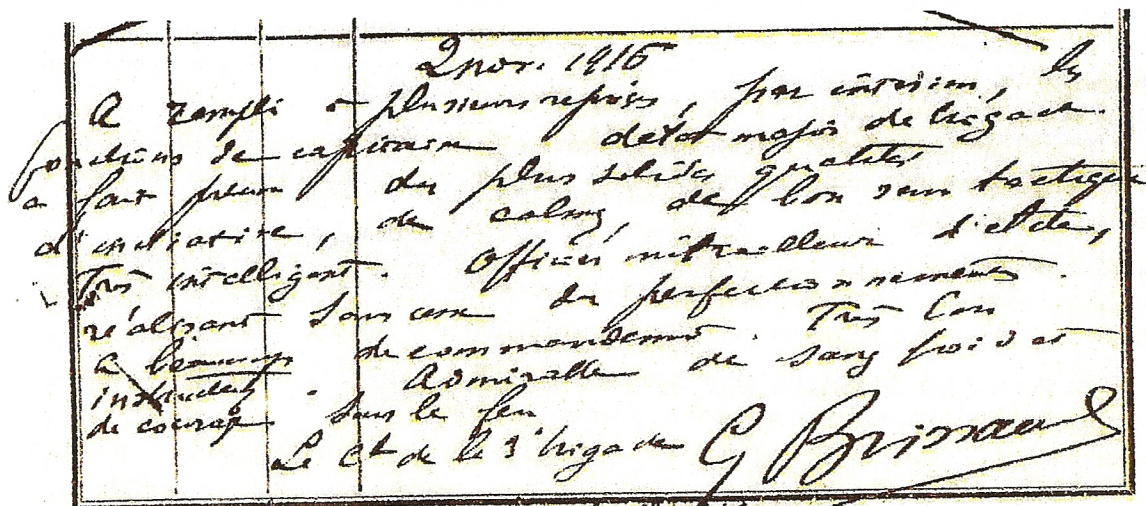 2 nov. 1916
A rempli à plusieurs reprises, par intérim, les
fonctions de capitaine d'état major de brigade.
a fait preuve des plus solides qualités
d'initiative, de calme, de bon sens tactique
Très intelligent. Officier mitrailleur d'élite,
réalisant sans cesse des perfectionnements.
a beaucoup de commandement. Très bon
instructeur. Admirable de sang froid et
de courage sous le feu
Le Ct de la 3e brigade G Brissaud